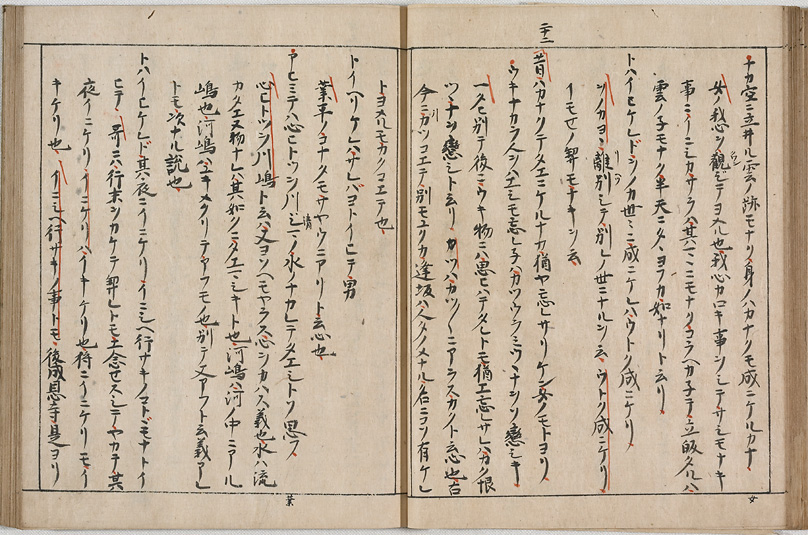 二十二
ナカ空ニ立井ル雲ノ跡モナク身ノハカナクモ成ニケルカナ
女ノ我心ヲ観ジテヨメル也我心カロキ事ヲシテサモナキ
事ニイニシカサラハ其マヽニモナクコラヘカ子テ立皈タルハ
雲ノ子モナク半天ニタヽヨフカ如ナリト云リ
トハイヒケレドヲノカ世ヽニ成ニケレハウトク成ニケリ
ヲノカヨヽ離別シテ別レノ世ニナルヲ云ウトク成ニケリ
イモセノ契モナキヲ云
昔ハカナクテタエニケルナカ猶ヤ忘レサリケン女ノモトヨリ
ウキナカラ人ヲハエシモ忘レ子ハカツウラミツヽナヲソ戀シキ
一タヒ別テ後ニウキ物ニハ思ヒハテタレトモ猶エ忘レサレハカク恨
ツヽナヲ戀シト云リカツハカツ〱ニアラスカクト云心也古
今ニカツコエテ別モユクカ逢坂ハ人タノメナル名ニコソ有ケレ
女
トヨメルモカクコエテ也
トイヘリケレハサレバヨトイヒテ男
業平ノコナタモサヤウニアリト云心也
アヒミテハ心ヒトツヲ川シマノ水ノナカレテタエシトソ思フ
心ヒトツヲ川嶋ト云ハ又ヨソヘモヤラス心ヲカハス義也水ハ流
カタエヌ物ナレハ其如クニタエマシキト也河嶋ハ河ノ中ニアル
嶋也河嶋ハユキメクリテアフモノ也別テ又アフト云義アレ
トモ次ナル説也
トハイヒケレド其夜イニケリイニシヘ行サキノコトドモナトイ
ヒテ ハ行末ヲカケテ契レトモ念セスシテヤカテ其
夜イニケリイニケリハイキケリ也将ニイニケリモイ
キケリ也イニシヘ行サキノ事トモ後成恩寺是ヨリ
業